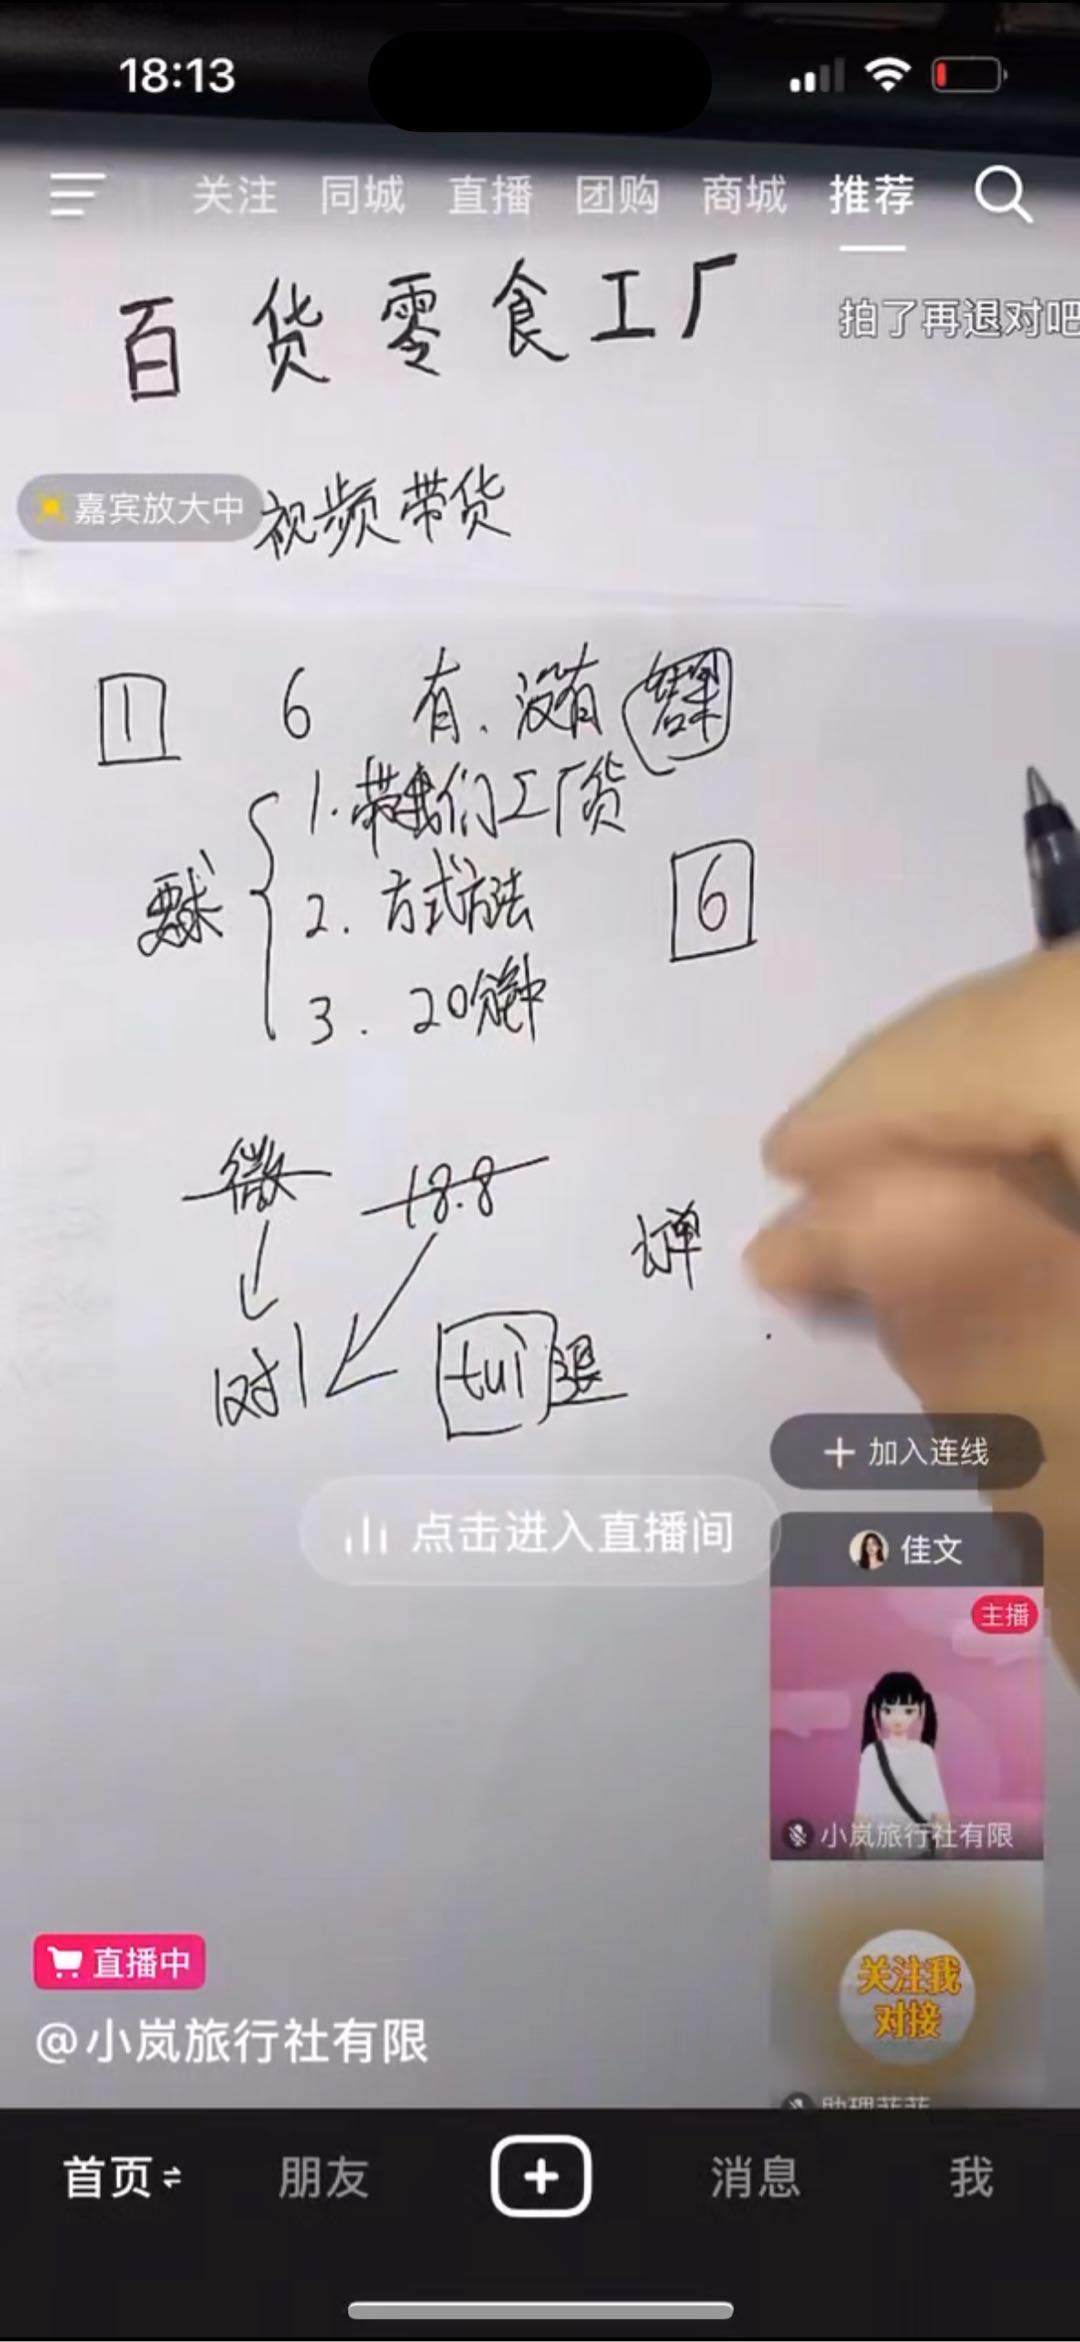 18:13
关注 同城 直播 团购 商城 推荐
百货零食工厂
拍了再退对吧
嘉宾放大中
视频带货
1 6 有、没有
1. 带我们工厂货
要求
2. 方式方法
6
3. 20分钟
微 18.8
订单
对 tui 退
加入连线
点击进入直播间
佳文
主播
小岚旅行社有限
关注我
对接
直播中
@小岚旅行社有限
助理菲菲
首页 朋友 消息 我